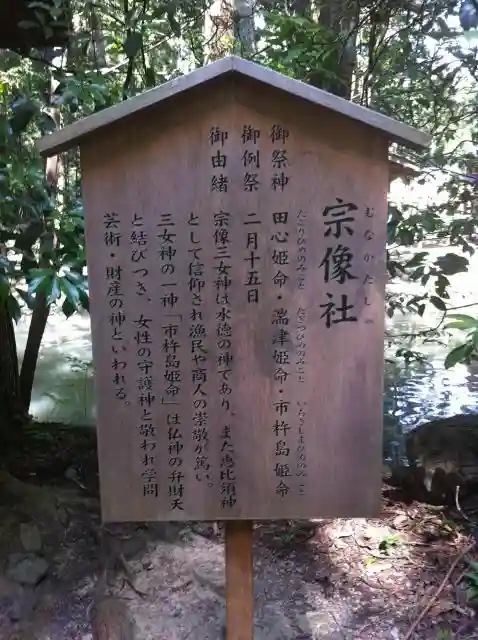 むなかたしゃ
宗像社
たごりひめのみこと たきつひめのみこと いちきしまひめのみこと
御祭神 田心姫命・湍津姫命・市杵島姫命
御例祭 二月十五日
御由緒 宗像三女神は水徳の神であり、また恵比須神
として信仰され漁民や商人の崇敬が篤い。
三女神の一神「市杵島姫命」は仏神の弁財天
と結びつき、女性の守護神と敬われ学問
芸術・財産の神といわれる。